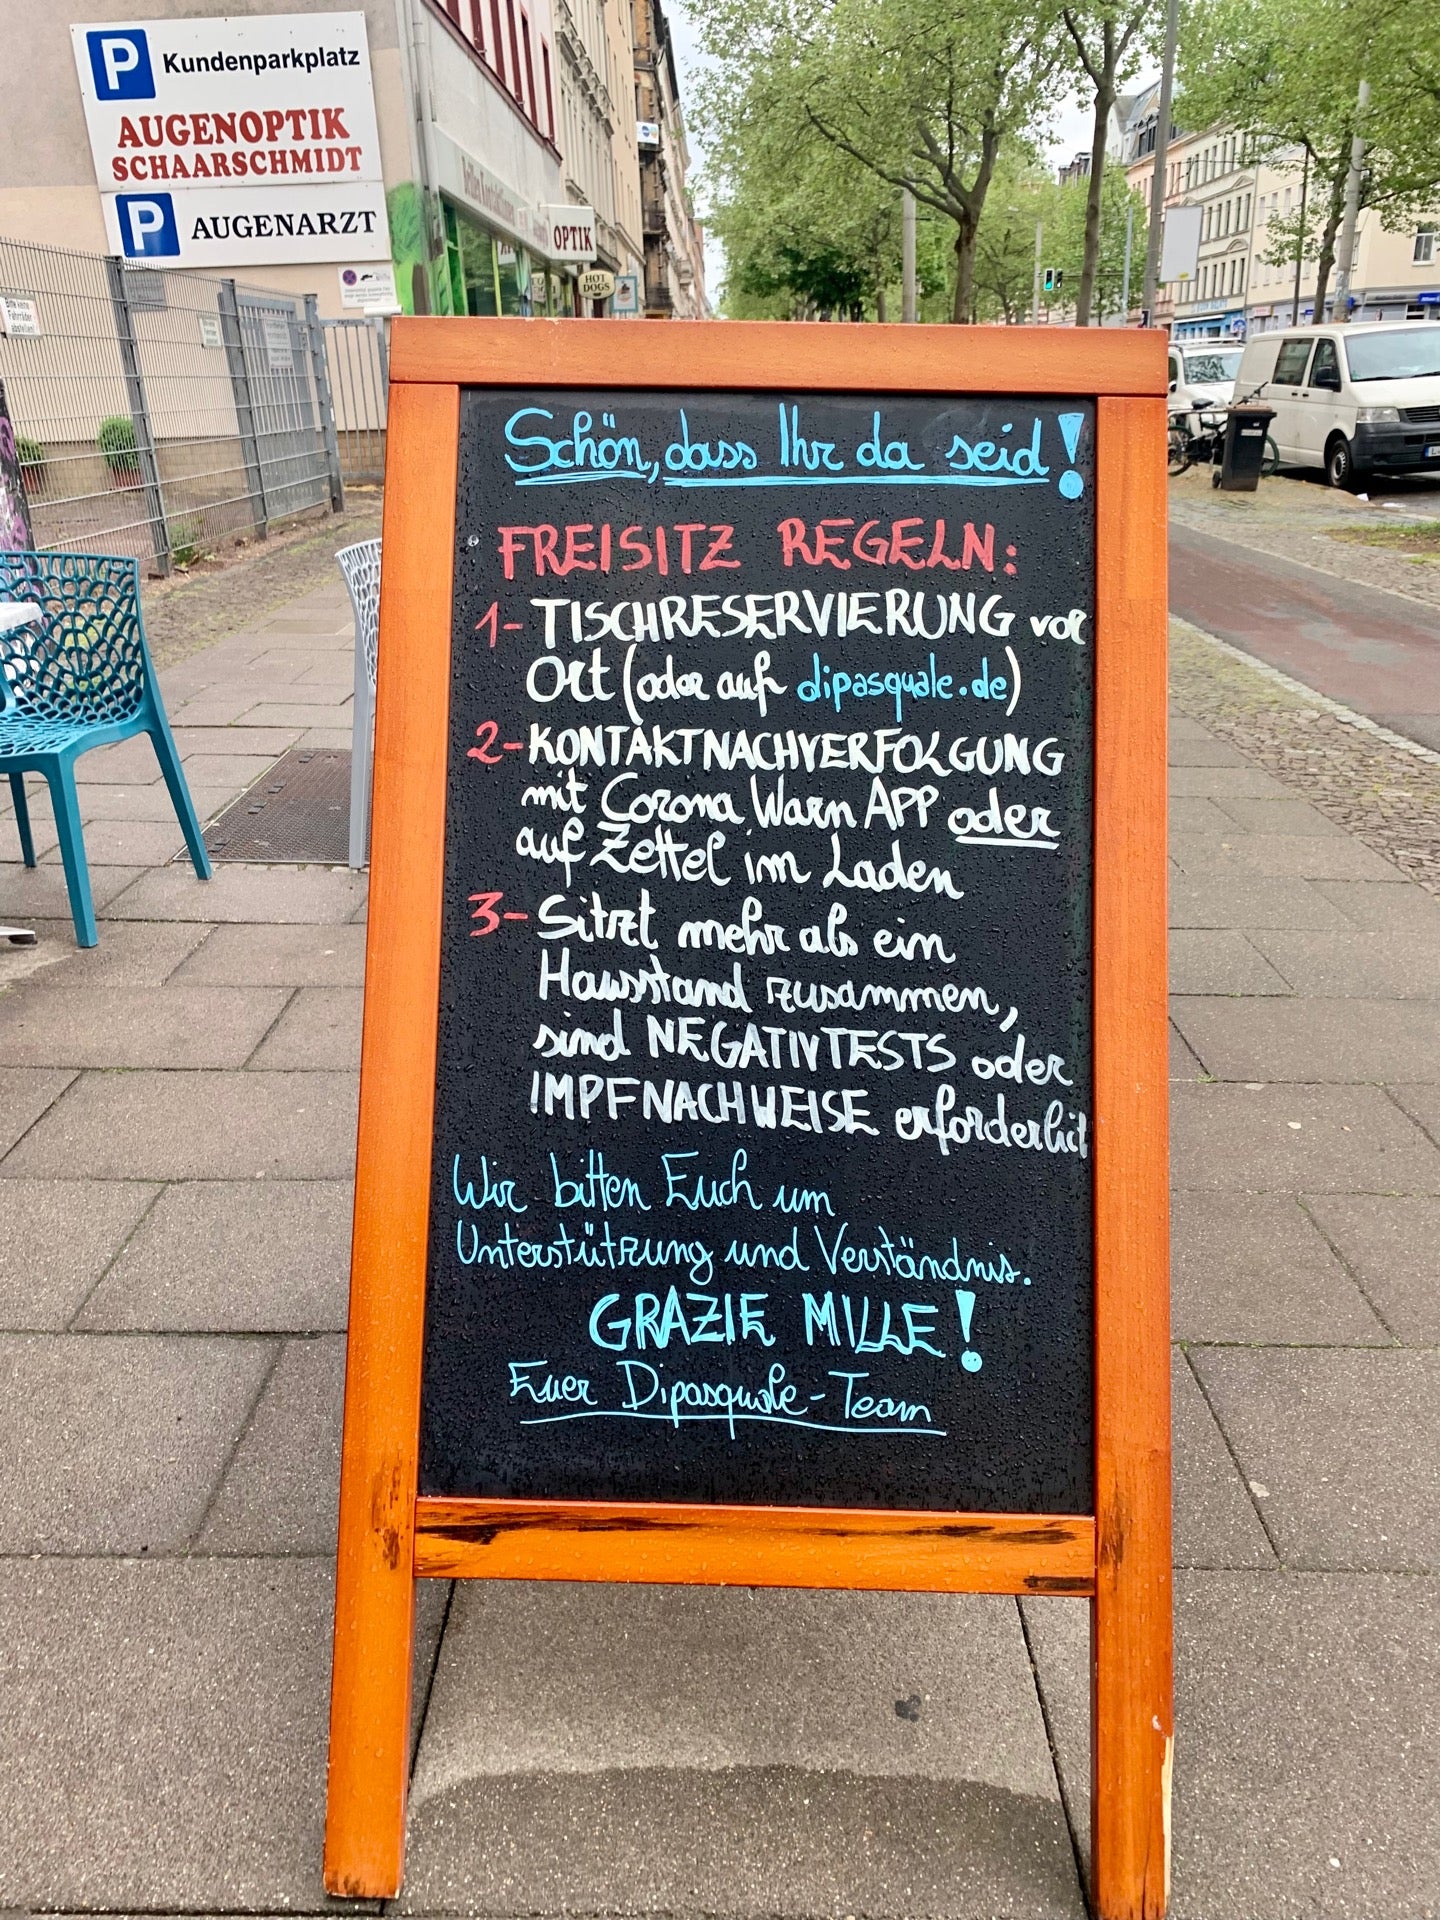 P Kundenparkplatz
AUGENOPTIK
SCHAARSCHMIDT
P AUGENARZT
OPTIK
HOT
DOGS
Bitte keine
Fahrräder
abstellen!
Schön, dass Ihr da seid!
FREISITZ REGELN:
1- TISCHRESERVIERUNG vor
Ort (oder auf dipasquale.de)
2- KONTAKTNACHVERFOLGUNG
mit Corona Warn APP oder
auf Zettel im Laden
3- Sitzt mehr als ein
Hausstand zusammen,
sind NEGATIVTESTS oder
IMPFNACHWEISE erforderlich
Wir bitten Euch um
Unterstützung und Verständnis.
GRAZIE MILLE!
Euer Dipasquale-Team